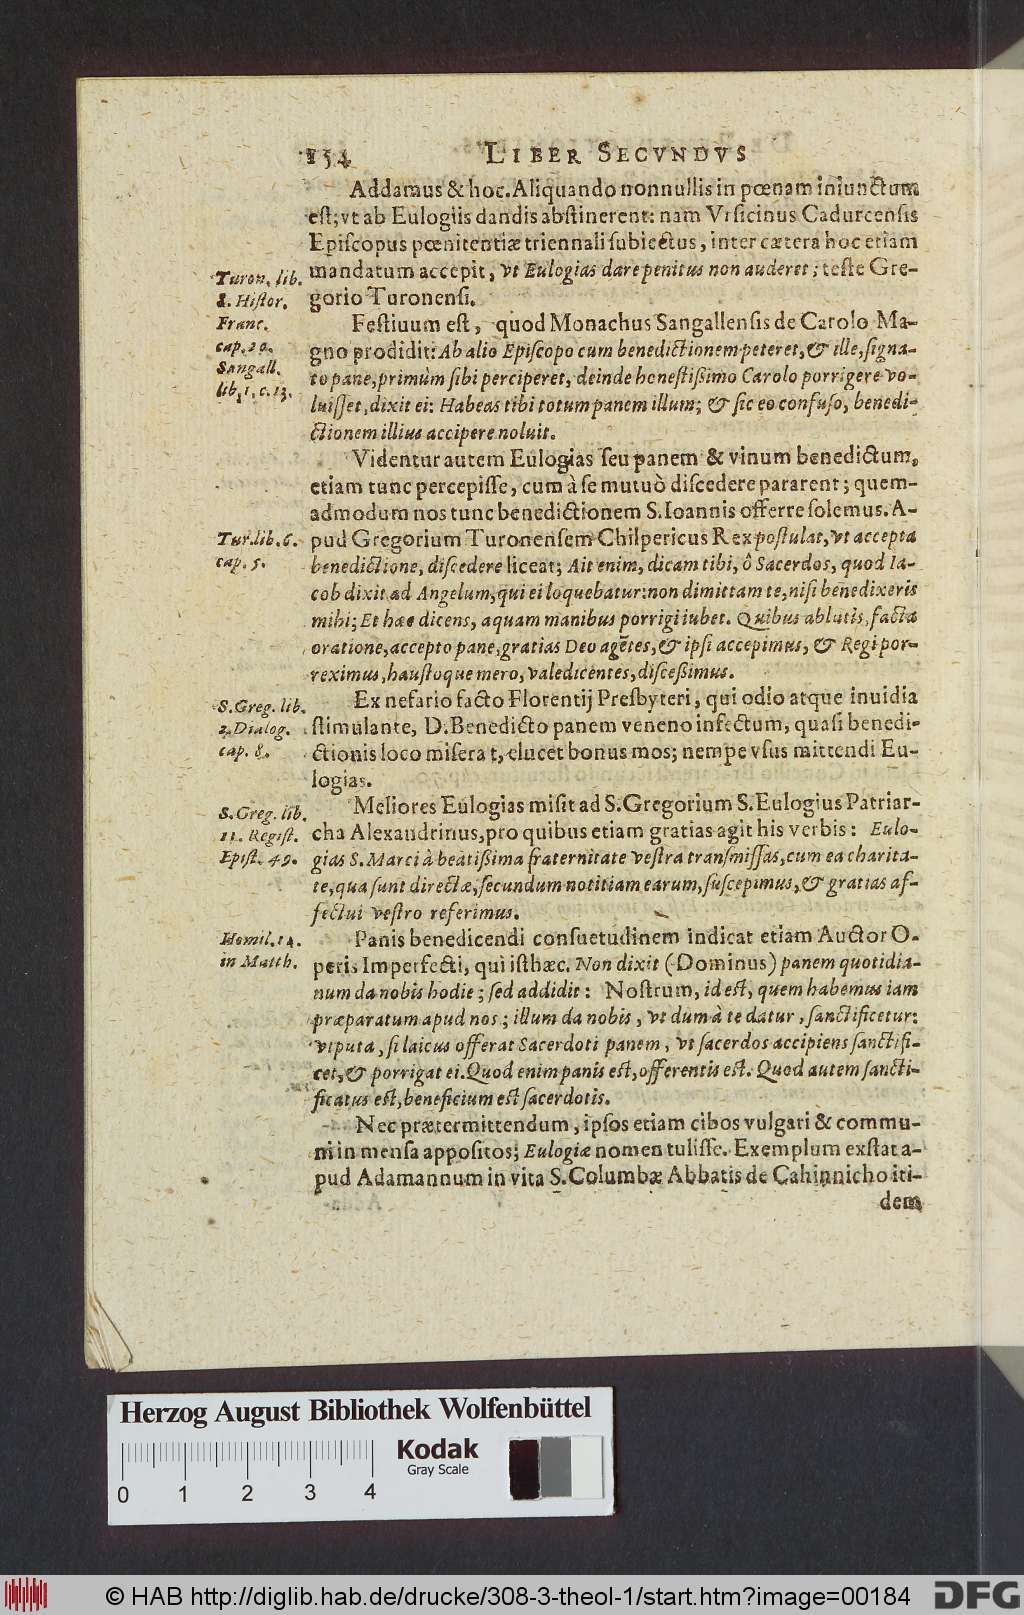 154 LIBER SECVNDVS
Addamus & hoc. Aliquando nonnullis in pœnam iniunctum
est; vt ab Eulogiis dandis abstinerent: nam Vrsicinus Cadurcensis
Episcopus pœnitentiæ triennali subiectus, inter cætera hoc etiam
mandatum accepit, vt Eulogias dare penitus non auderet; teste Gre-
gorio Turonensi.
Turon. lib.
8. Histor.
Franc.
cap. 20.
Festiuum est, quod Monachus Sangallensis de Carolo Ma-
gno prodidit: Ab alio Episcopo cum benedictionem peteret, & ille, signa-
to pane, primùm sibi perciperet, deinde honestißimo Carolo porrigere vo-
luisset, dixit ei: Habeas tibi totum panem illum; & sic eo confuso, benedi-
ctionem illius accipere noluit.
Sangall.
lib. 1. c. 13.
Videntur autem Eulogias seu panem & vinum benedictum,
etiam tunc percepisse, cum à se mutuò discedere pararent; quem-
admodum nos tunc benedictionem S. Ioannis offerre solemus. A-
pud Gregorium Turonensem Chilpericus Rex postulat, vt accepta
benedictione, discedere liceat; Ait enim, dicam tibi, ô Sacerdos, quod Ia-
cob dixit ad Angelum, qui ei loquebatur: non dimittam te, nisi benedixeris
mihi; Et hæc dicens, aquam manibus porrigi iubet. Quibus ablutis, facta
oratione, accepto pane, gratias Deo agētes, & ipsi accepimus, & Regi por-
reximus, haustoque mero, valedicentes, disceßimus.
Tur. lib. 6.
cap. 5.
Ex nefario facto Florentij Presbyteri, qui odio atque inuidia
stimulante, D. Benedicto panem veneno infectum, quasi benedi-
ctionis loco miserat, elucet bonus mos; nempe vsus mittendi Eu-
logias.
S. Greg. lib.
2. Dialog.
cap. 8.
Meliores Eulogias misit ad S. Gregorium S. Eulogius Patriar-
cha Alexandrinus, pro quibus etiam gratias agit his verbis: Eulo-
gias S. Marci à beatißima fraternitate vestra transmissas, cum ea charita-
te, qua sunt directæ, secundum notitiam earum, suscepimus, & gratias af-
fectui vestro referimus.
S. Greg. lib.
11. Regist.
Epist. 49.
Panis benedicendi consuetudinem indicat etiam Auctor O-
peris Imperfecti, qui isthæc. Non dixit (Dominus) panem quotidia-
num da nobis hodie; sed addidit: Nostrum, id est, quem habemus iam
præparatum apud nos; illum da nobis, vt dum à te datur, sanctificetur:
vtputa, si laicus offerat Sacerdoti panem, vt sacerdos accipiens sanctifi-
cet, & porrigat ei. Quod enim panis est, offerentis est. Quod autem sancti-
ficatus est, beneficium est sacerdotis.
Homil. 14.
in Matth.
Nec prætermittendum, ipsos etiam cibos vulgari & commu-
ni in mensa appositos; Eulogiæ nomen tulisse. Exemplum exstat a-
pud Adamannum in vita S. Columbæ Abbatis de Cahinnicho iti-
dem
Herzog August Bibliothek Wolfenbüttel
Kodak
Gray Scale
0 1 2 3 4
© HAB http://diglib.hab.de/drucke/308-3-theol-1/start.htm?image=00184
DFG